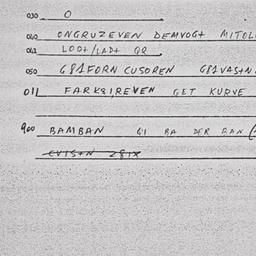 030 O
040 ONGRUZEVEN DEMVOGT MITOL
041 LOOT/LADT QR
050 G81FORN CUSOREN G81VASTN
011 FARK81,REVEN GET KURVE
900 BAMBAN GI BA DER BAN
EVISTN 281X